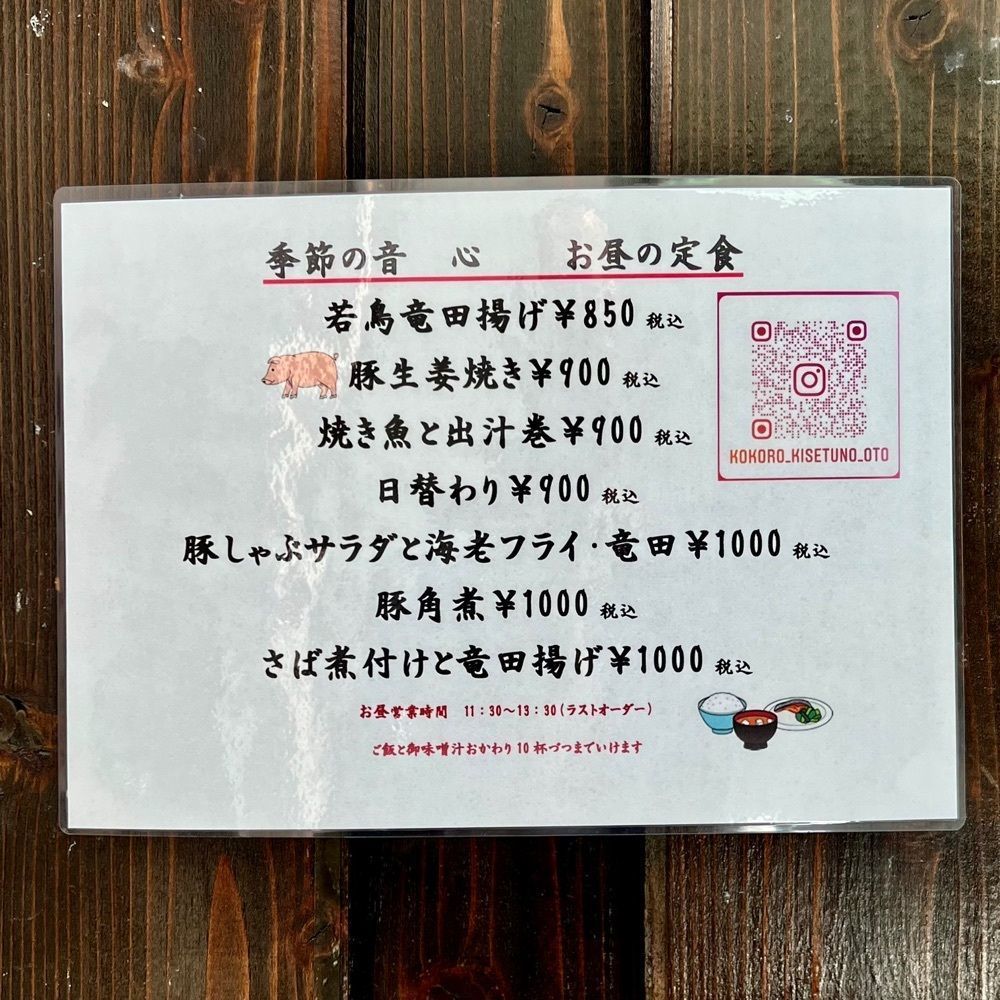 季節の音　心　　お昼の定食
若鳥竜田揚げ¥850 税込
豚生姜焼き¥900 税込
焼き魚と出汁巻¥900 税込
日替わり¥900 税込
豚しゃぶサラダと海老フライ・竜田¥1000 税込
豚角煮¥1000 税込
さば煮付けと竜田揚げ¥1000 税込
お昼営業時間　11:30〜13:30(ラストオーダー)
ご飯と御味噌汁おかわり10杯づつまでいけます
KOKORO_KISETUNO_OTO